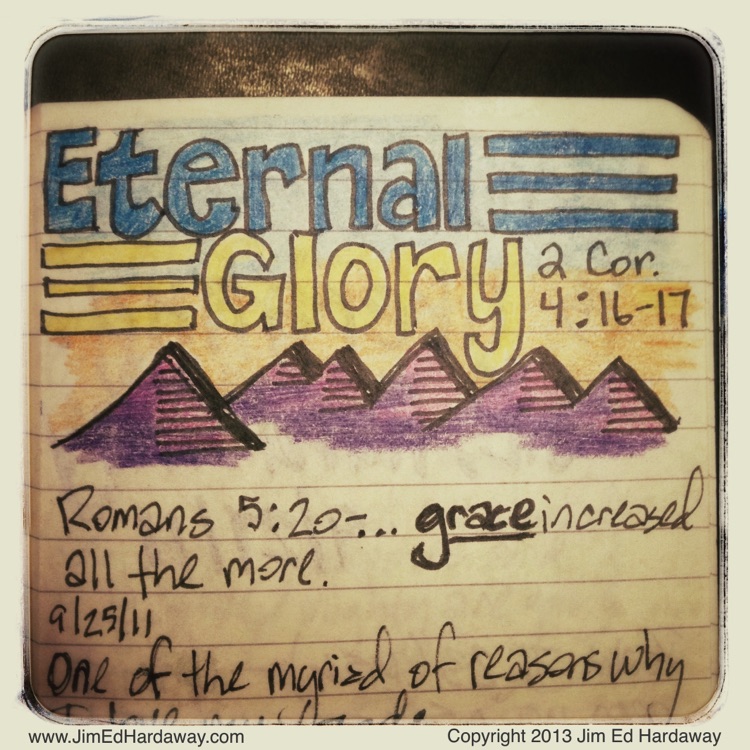 Eternal
Glory
2 Cor.
4:16-17
Romans 5:20-... grace increased
all the more.
9/25/11
One of the myriad of reasons why
I love my
www.JimEdHardaway.com
Copyright 2013 Jim Ed Hardaway